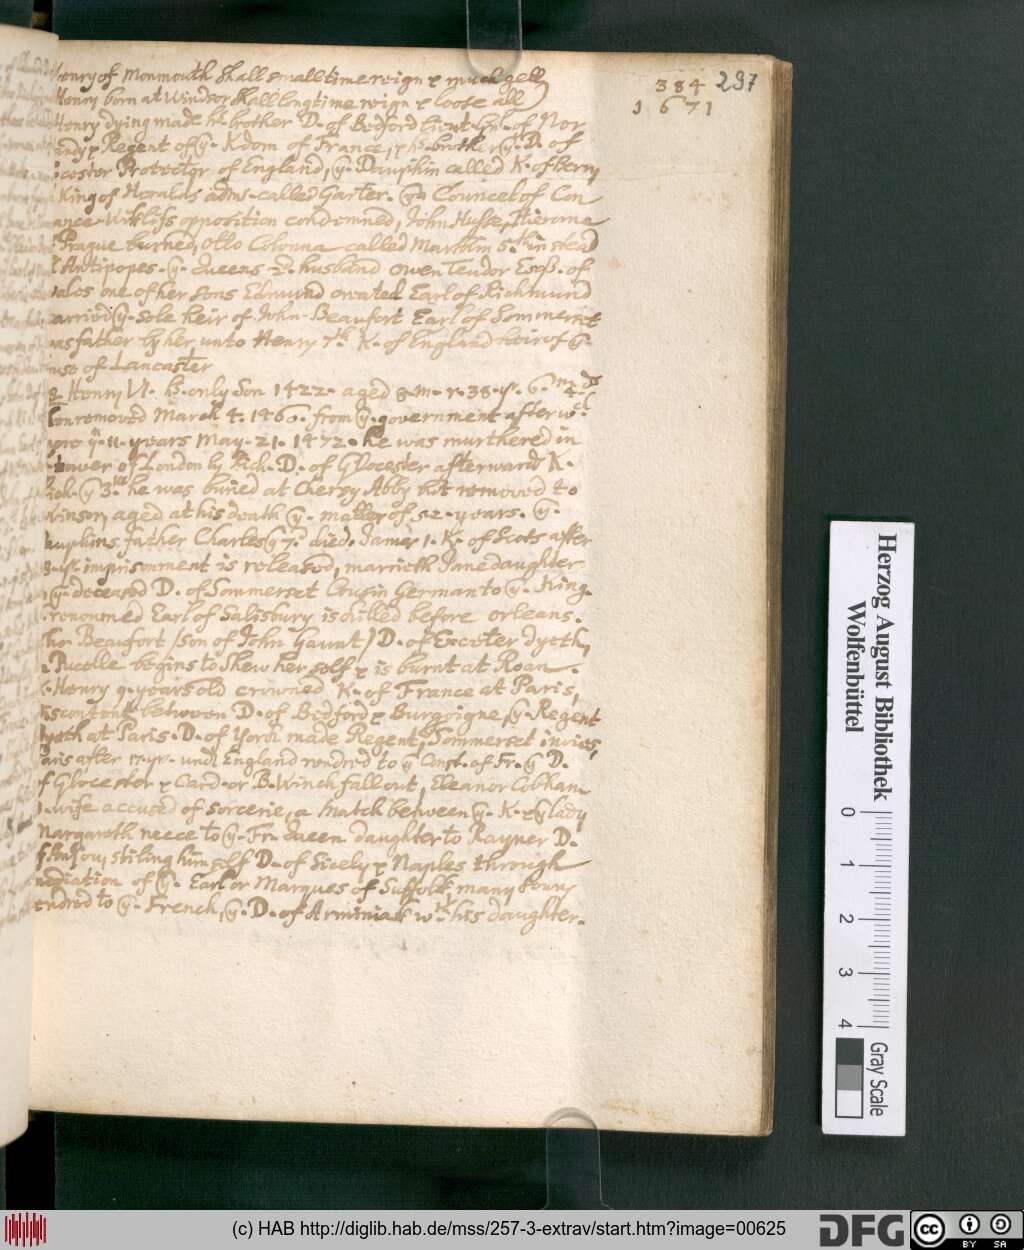 384 297
1671
Henry of Monmouth shall small time reign & much gett
Henry born at Windsor shall long time reign & loose all
Henry dying made hs. brother D. of Bedford Lieut. Gn. of Nor
andy & Regent of ye. Kdom of France, & hs. brother ye. D. of
cester Protector of England, ye. Dauphin called K. of Berry
King of Heralds adms. called Garter. ye. Councel of Con
ance Wiklifs opposition condemned, John Husse, Hierome
Prague burned, Otto Colonna called Marthin 5.th in stead
Antipopes. ye. Queens 2d. husband Owen Teudor Esqr. of
ales one of her sons Edmund created Earl of Richmund
arried ye. sole heir of John Beaufort Earl of Sommerset
as father by her unto Henry 7.th K. of England heir of ye.
use of Lancaster
Henry VI. hs. only Son 1422. aged 8. m. r. 38. yr. 6. m. 4. ds
removed March 4. 1460. from ye. government after wc.
yt. 11. years May. 21. 1472. he was murthered in
tower of London by Rich. D. of Glocester afterwards K.
Rich. ye 3.th he was buried at Chersy Abby but removed to
Winsor, aged at his death ye. matter of 52. years. ye.
auphins father Charles ye 7. died. Iames 1. K. of Scots after
yr. imprisonment is released, marrieth Jane daughter
ye. deceased D. of Sommerset Cousin German to ye. King.
renowned Earl of Salisbury is killed before Orleans.
Beaufort (son of John Gaunt) D. of Exceter dyeth,
Pucelle begins to shew her self & is burnt at Roan.
K. Henry 9. years old crowned K. of France at Paris,
iscontent between D. of Bedford & Burgoigne, ye. Regent
dyeth at Paris. D. of York made Regent, Sommerset invies,
aris after 17. yr. und England rendred to ye Const. of Fr. ye D.
of Glocester & Card. or B. Winch fall out, Eleanor Cobham
wife accused of sorcerie, a match between ye. K. & ye lady
Margareth neece to ye. Fr. Queen daughter to Rayner D.
f Anjou, stiling himself D. of Sicely & Naples through
mediation of ye. Earl or Marques of Suffolk, many towns
endred to ye. French, ye. D. of Arminiak wth his daughter.
Herzog August Bibliothek
Wolfenbüttel
0 1 2 3 4
Gray Scale
(c) HAB http://diglib.hab.de/mss/257-3-extrav/start.htm?image=00625
DFG
cc BY SA